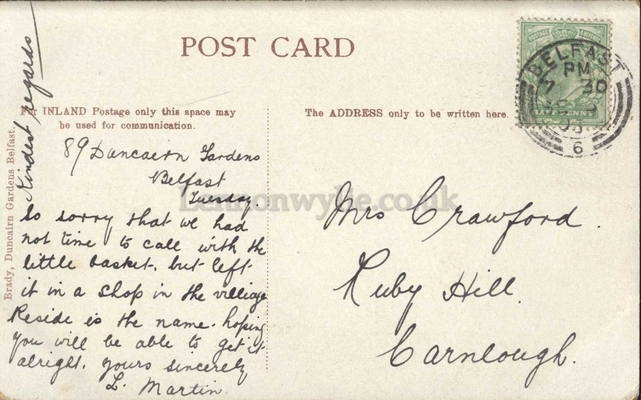 POST CARD
For INLAND Postage only this space may
be used for communication.
The ADDRESS only to be written here.
Kindest regards
89 Duncairn Gardens
Belfast
Tuesday
So sorry that we had
not time to call with the
little basket. but left
it in a shop in the village
Reside is the name. hoping
you will be able to get it
alright. yours sincerely
L. Martin.
Mrs Crawford.
Ruby Hill.
Carnlough.
Brady, Duncairn Gardens Belfast,
BELFAST
PM
7 30
6
Lennonwylie.co.uk